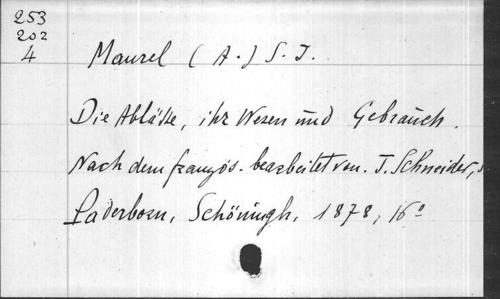 253
202
4
Maurel (A.) S. J.
Die Ablässe, ihr Wesen und Gebrauch.
Nach dem französ. bearbeitet von. J. Schneider, s
Paderborn, Schöningh, 1878, 16º